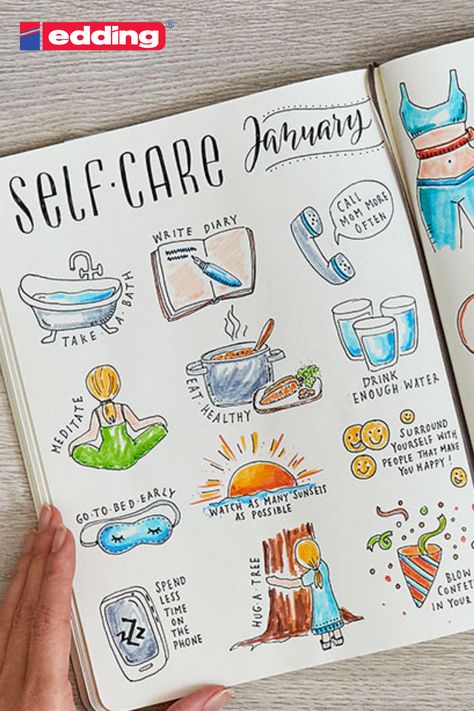 edding®
SELF·CARE January
WRITE DIARY
CALL
MOM MORE
OFTEN
TAKE·A·BATH
MEDITATE
EAT HEALTHY
DRINK
ENOUGH WATER
SURROUND
YOURSELF WITH
PEOPLE THAT MAKE
YOU HAPPY!
GO·TO·BED·EARLY
WATCH AS MANY SUNSETS
AS POSSIBLE
SPEND
LESS
TIME
ON
THE
PHONE
ZZZ
HUG·A·TREE
BLOW
CONFET
IN YOUR